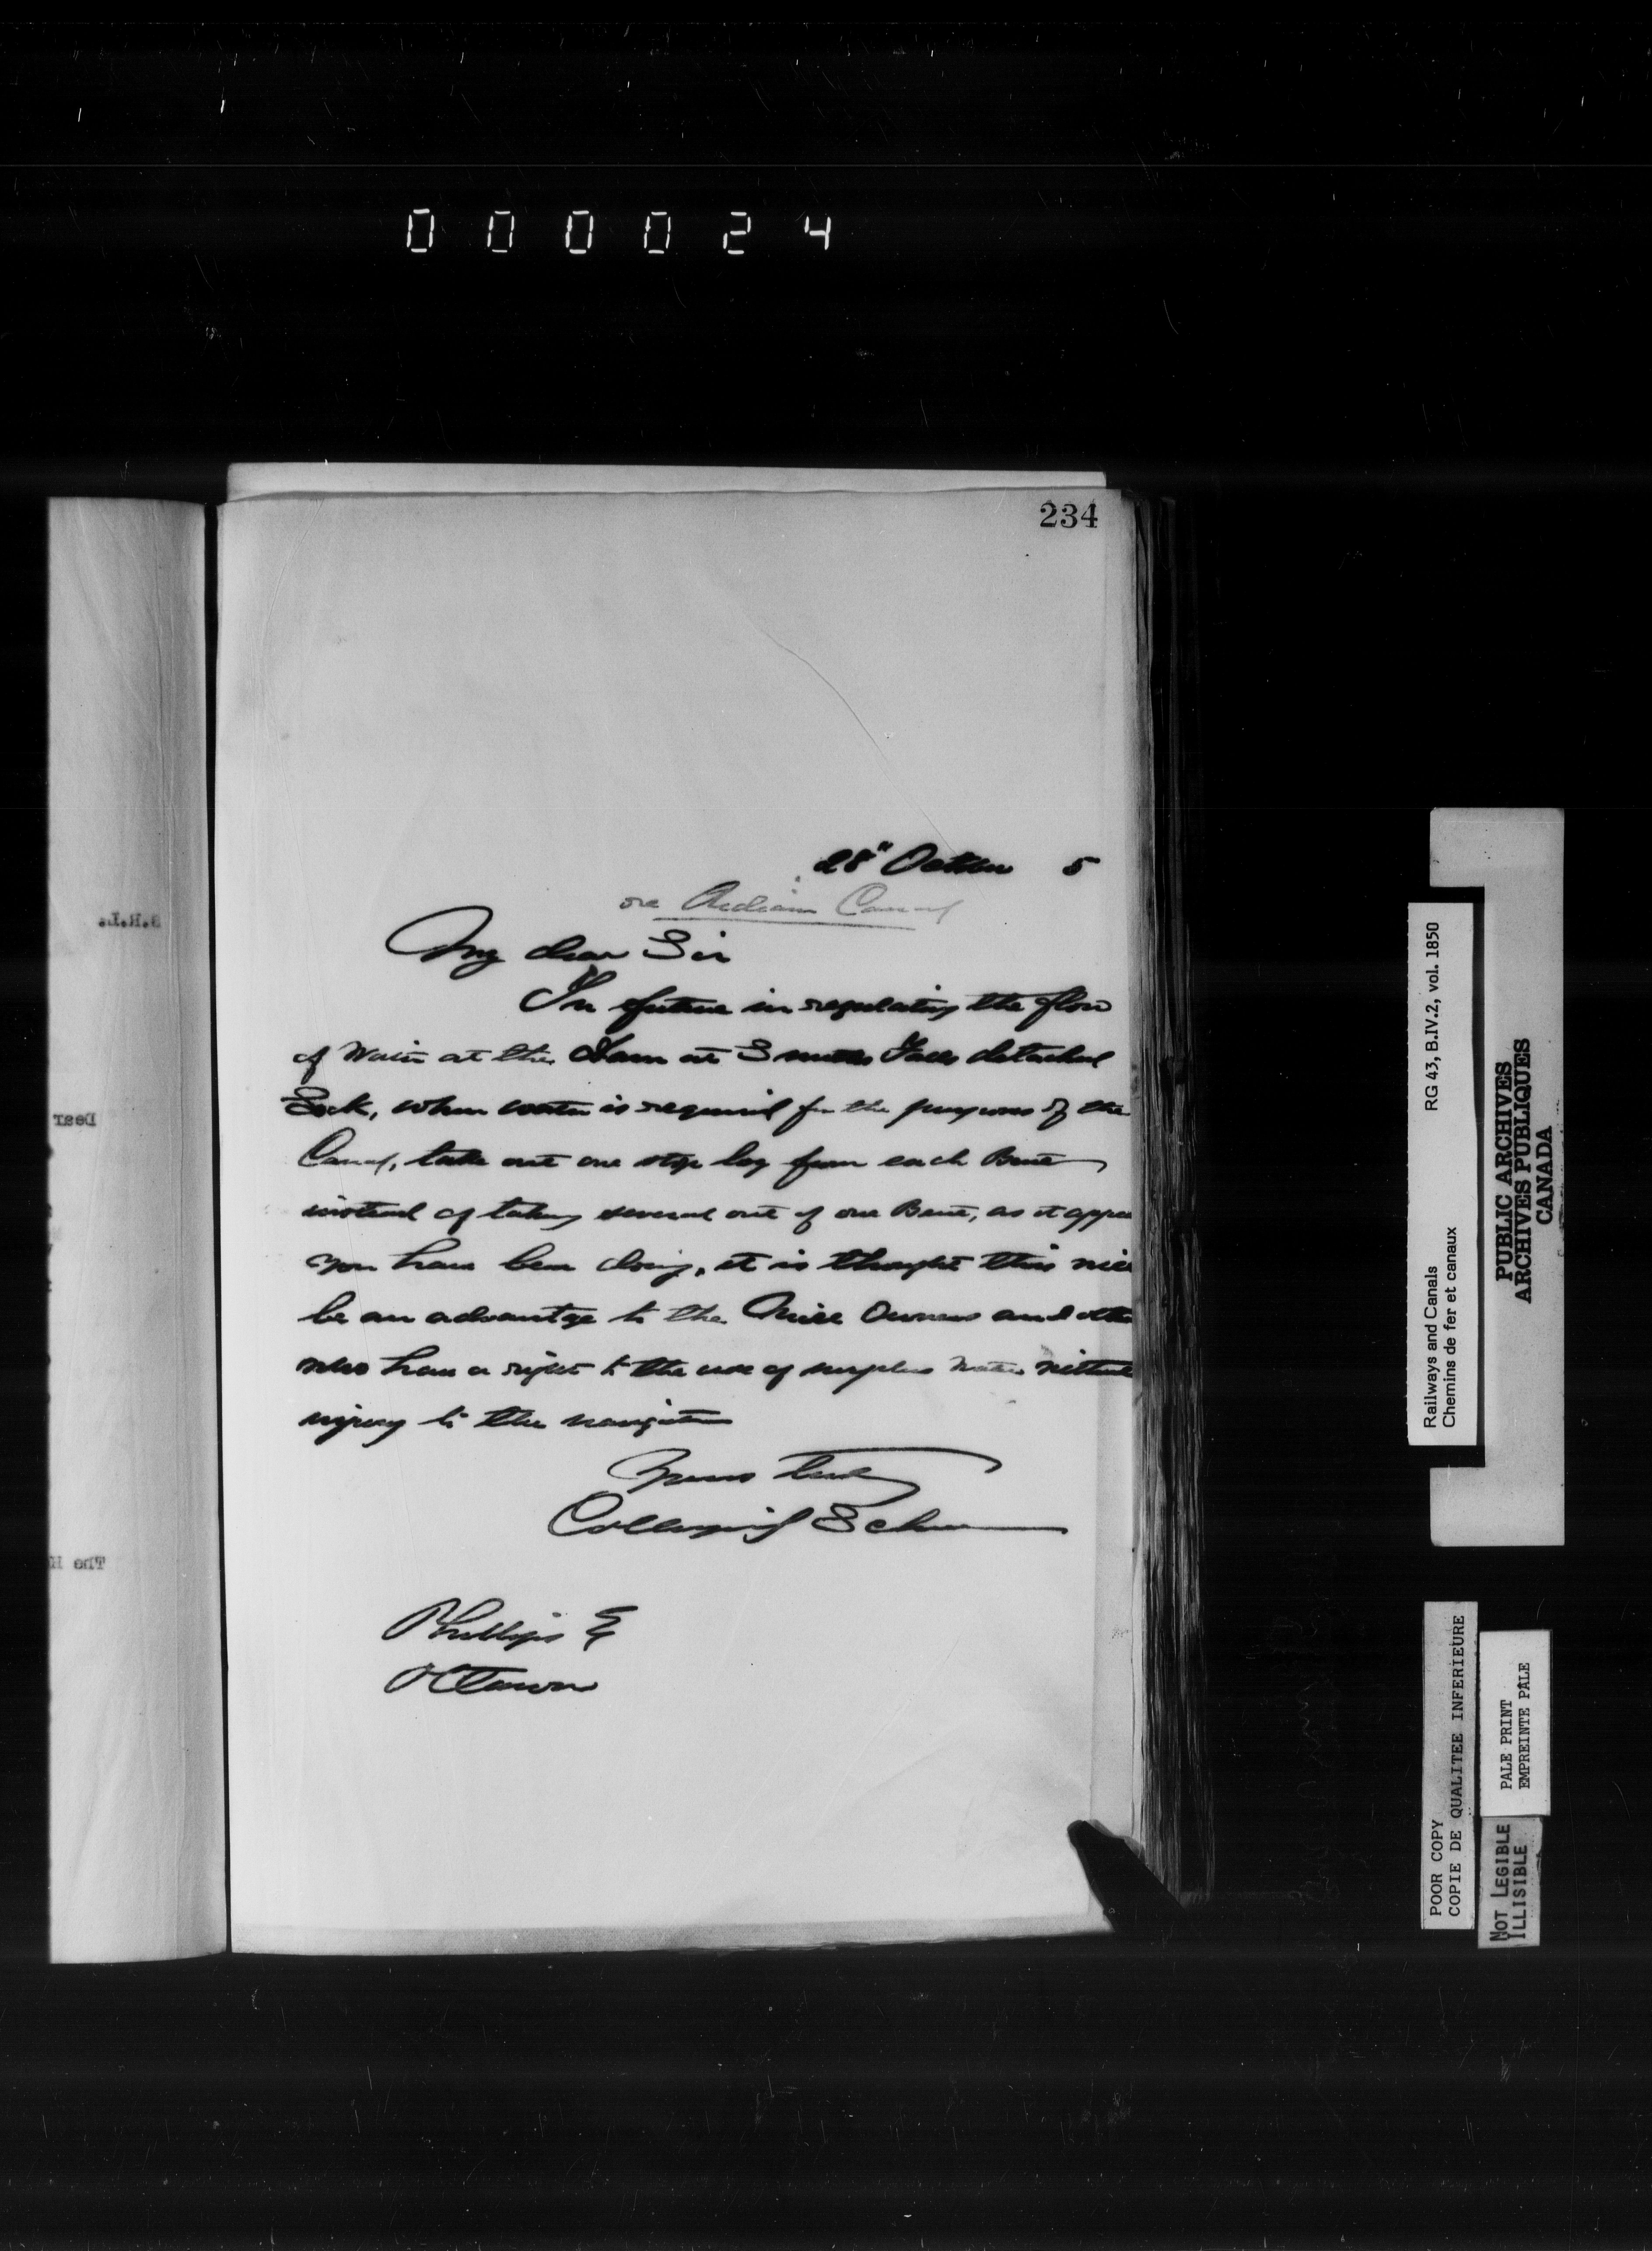 000024
234
28" October 5
re Rideau Canal
My dear Sir
In future in regulating the flow
of Water at the Dam at Smiths Falls detached
Lock, when water is required for the purposes of the
Canal, take out one stop log from each Bent
instead of taking several out of one Bent, as it appea
you have been doing, it is thought this will
be an advantage to the Mill Owners and othe
who have a right to the use of surplus water without
injury to the navigation
Yours truly
Collingwood Schreiber
Phillips E
Ottawa
S.R.L.
Dear
The H
Railways and Canals RG 43, B.IV.2, vol. 1850
Chemins de fer et canaux
PUBLIC ARCHIVES
ARCHIVES PUBLIQUES
CANADA
POOR COPY
COPIE DE QUALITEE INFERIEURE
PALE PRINT
EMPREINTE PALE
NOT LEGIBLE
ILLISIBLE